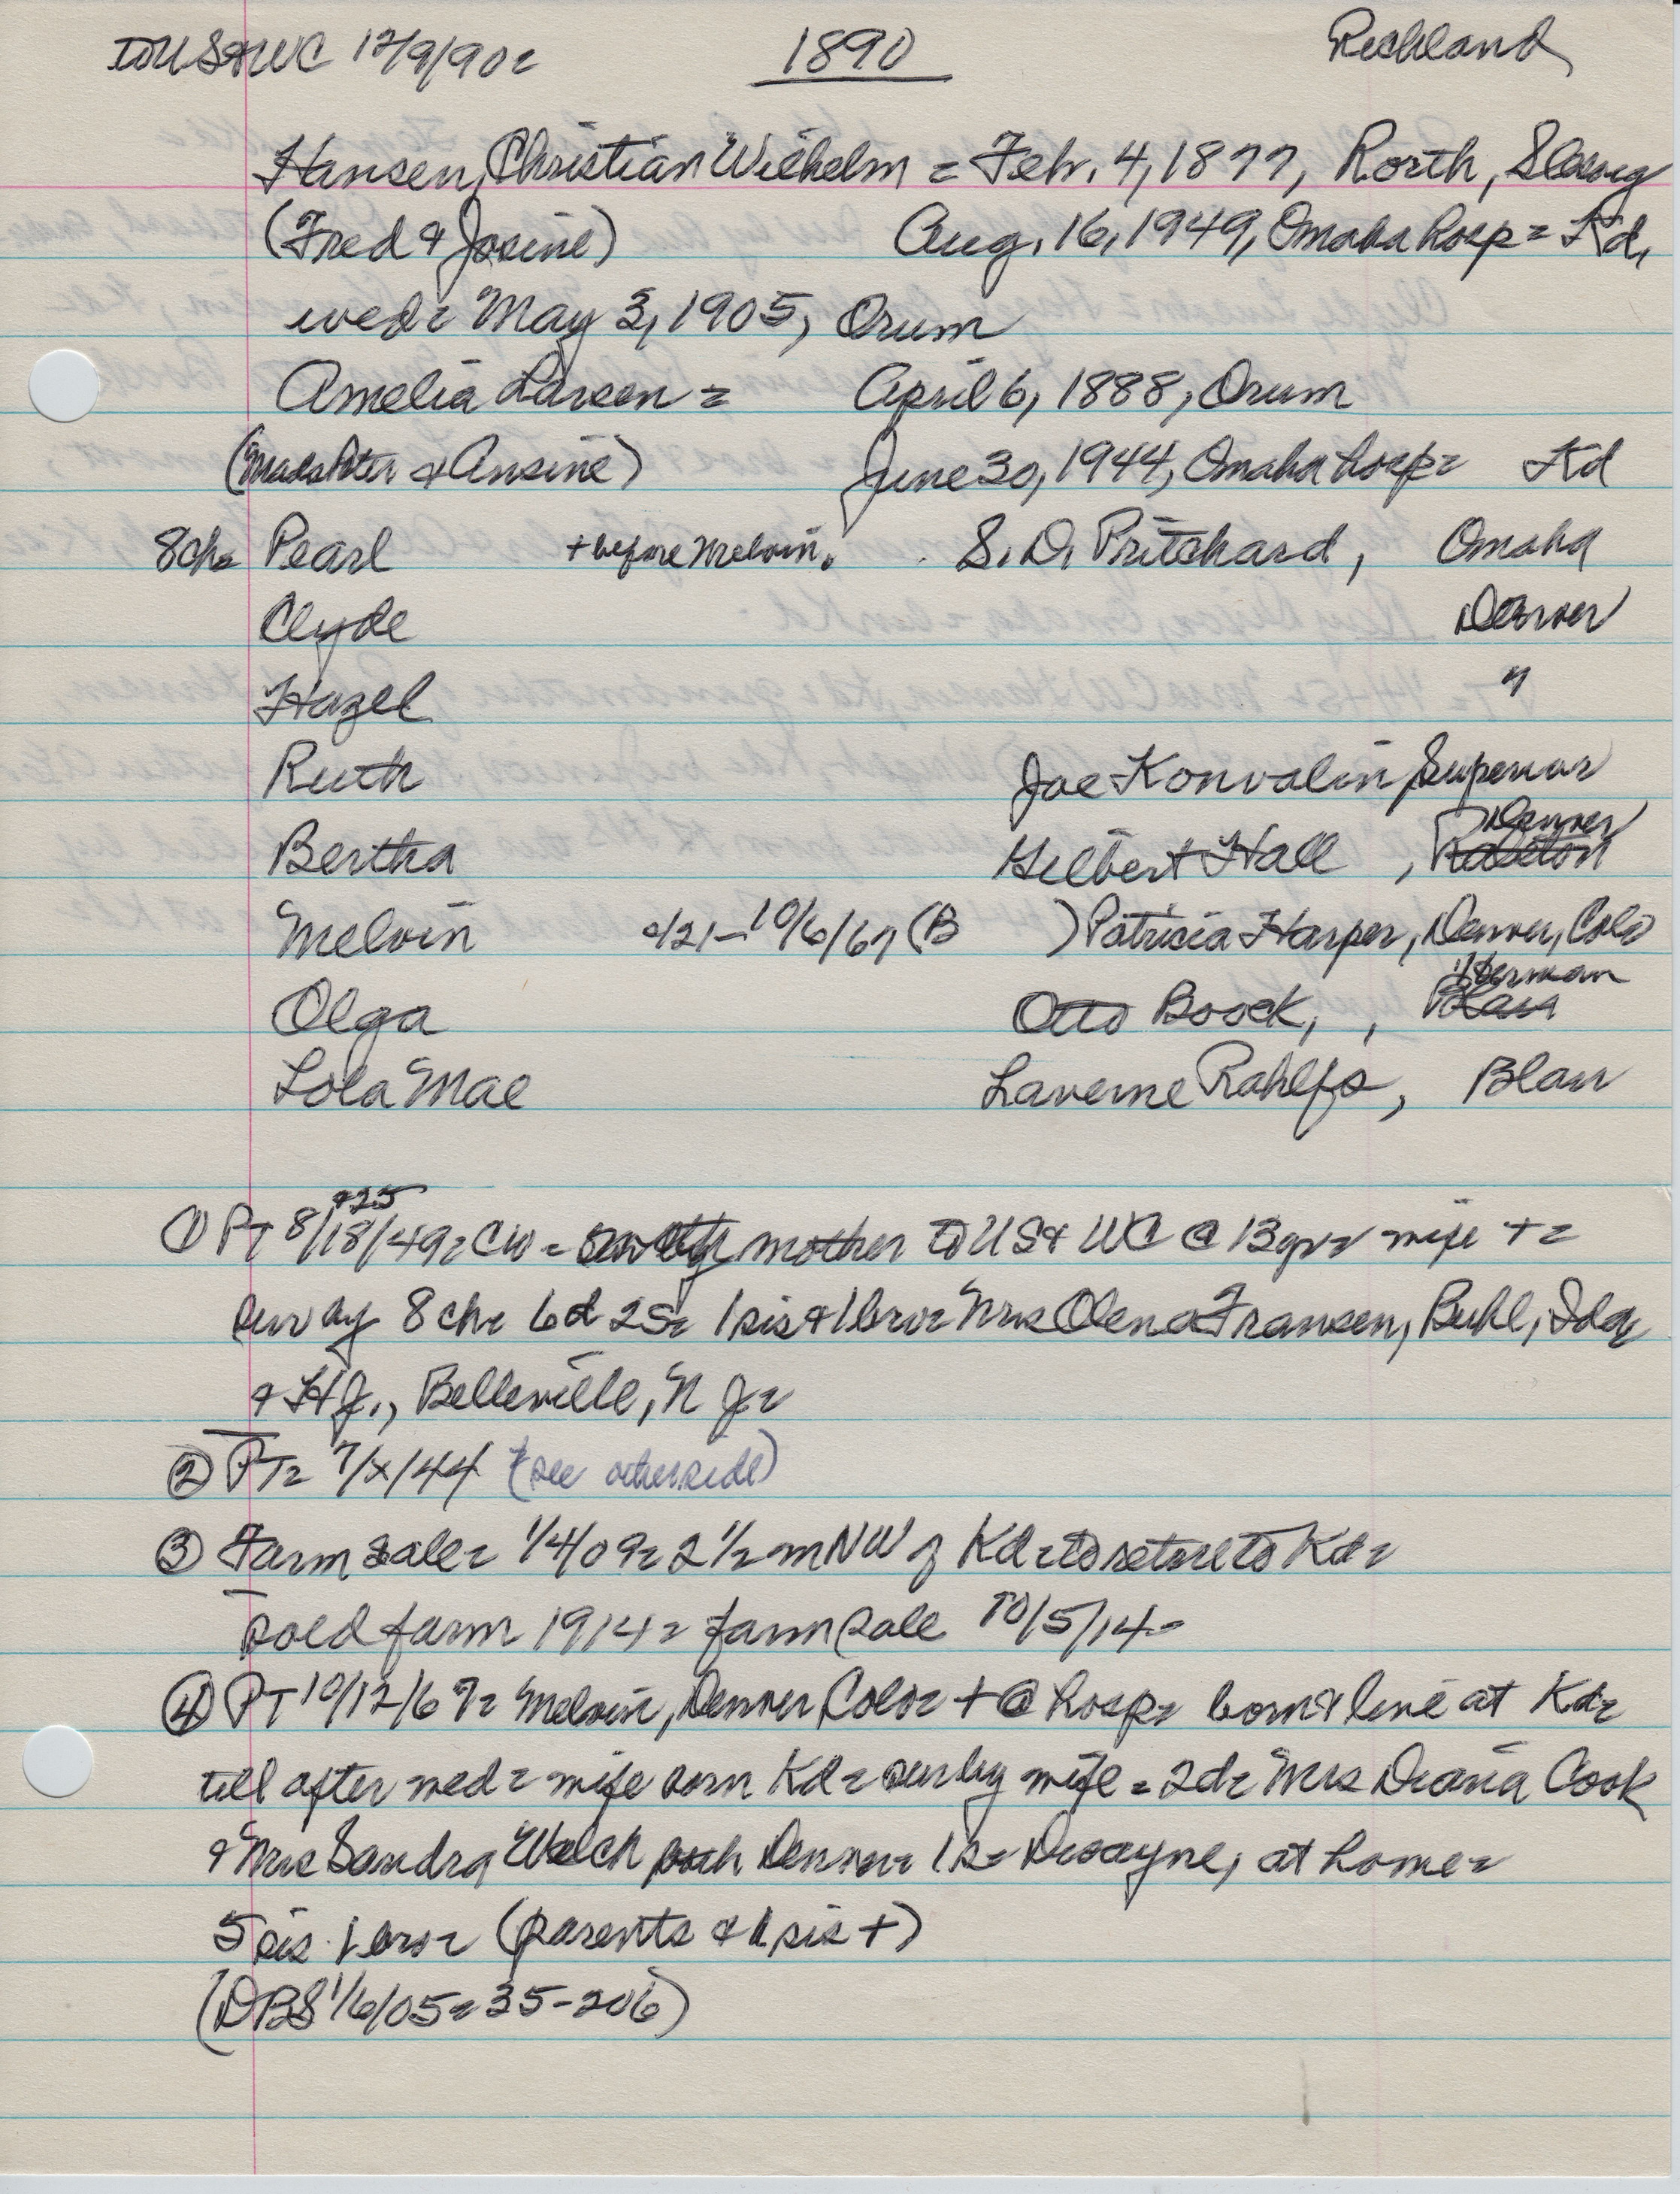 to US & WC 12/9/90= 1890 Richland
Hansen, Christian Wilhelm = Feb. 4, 1877, Rorth, Slesvig
(Fred & Josine) Aug. 16, 1949, Omaha hosp = Kd.
wed= May 3, 1905, Orum
Amelia Larsen = April 6, 1888, Orum
(Mads Peter & Ansine) June 30, 1944, Omaha hosp= Kd
8ch= Pearl + before Melvin. S. D. Pritchard, Omaha
Clyde Denver
Hazel "
Ruth Joe Konvalin, Superior
Denver
Bertha Gilbert Hall, Ralston
Melvin c/21-10/6/67 (B ) Patricia Harper, Denver, Colo
Herman
Olga Otto Boock, , Blair
Lola Mae Laverne Rahlfs, Blair
+25
① PT 8/18/49= CW = mother to US & WC @ 13yr= wife +=
surv by 8 ch= 6d 2s= 1 sis & 1 bro= Mrs Olena Fransen, Buhl, Ida
& HJ., Belleville, N J=
② PT= 7/x/44 (see other side)
③ Farm sale= 1/4/09= 2 1/2 m NW of Kd= to retire to Kd=
sold farm 1914= farm sale 10/5/14=
④ PT 10/12/67= Melvin, Denver Colo= + @ hosp= born & live at Kd=
till after wed= wife born Kd= surv by wife= 2d= Mrs Diana Cook
& Mrs Sandra Welch both Denver= 1s= Dwayne, at home=
5 sis 1 bro= (parents & 1 sis +)
(DBS 1/6/05= 35-206)